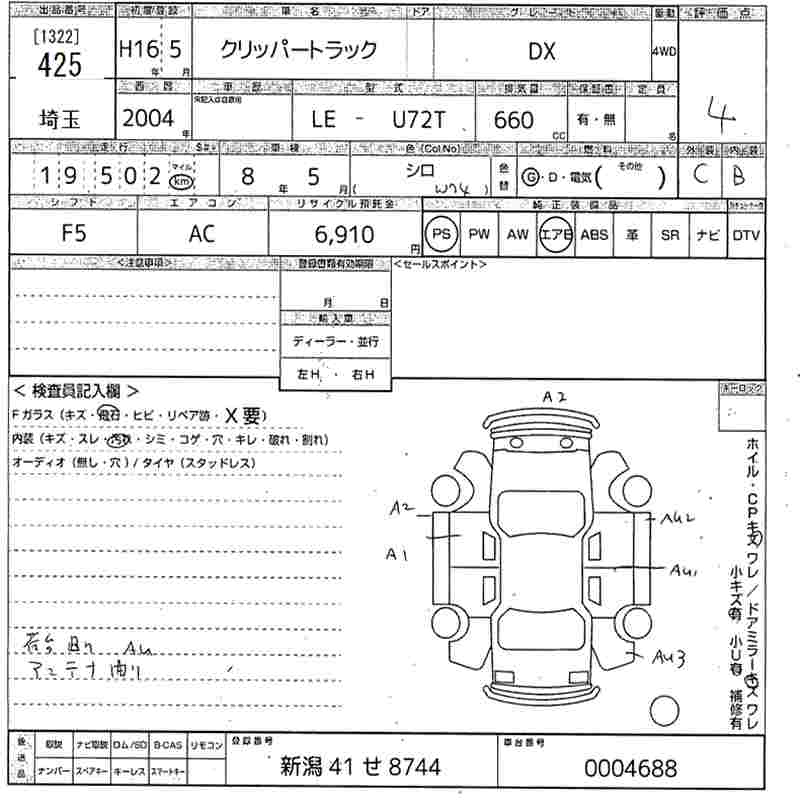 出品番号 初度登録 車名 ドア グレード 駆動 評価点
[1322]
425
H16 5
年 月
クリッパートラック
DX
4WD
4
埼玉
西暦 車歴 型式 排気量 保証書 定員
2004 年
LE - U72T
660 CC
有・無
名
走行 車検 色(Col.No) 燃料 外装 内装
19502
マイル
km
8 年 5 月
シロ
(W74)
色替
G・D・電気( その他 )
C
B
シフト エアコン リサイクル預託金 純正装備品
F5
AC
6,910 円
PS PW AW エアB ABS 革 SR ナビ DTV
<注意事項>
登録書類有効期限
<セールスポイント>
月 日
輸入車
ディーラー・並行
左H ・ 右H
< 検査員記入欄 >
Fガラス(キズ・飛石・ヒビ・リペア跡・X要)
内装(キズ・スレ・汚れ・シミ・コゲ・穴・キレ・破れ・割れ)
オーディオ(無し・穴)/タイヤ(スタッドレス)
A2
A2
AU2
A1
AU1
AU3
AU
アンテナ
ホイル・CPキズワレ/ドアミラーキズワレ
小キズ有 小U有 補修有
後送品
取説 ナビ取説 ロム/SD B-CAS リモコン
ナンバー スペアキー キーレス スマートキー
登録番号
新潟 41 せ 8744
車台番号
0004688